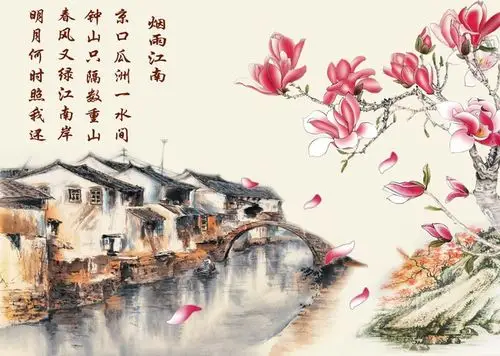 烟雨江南
京口瓜洲一水间
钟山只隔数重山
春风又绿江南岸
明月何时照我还